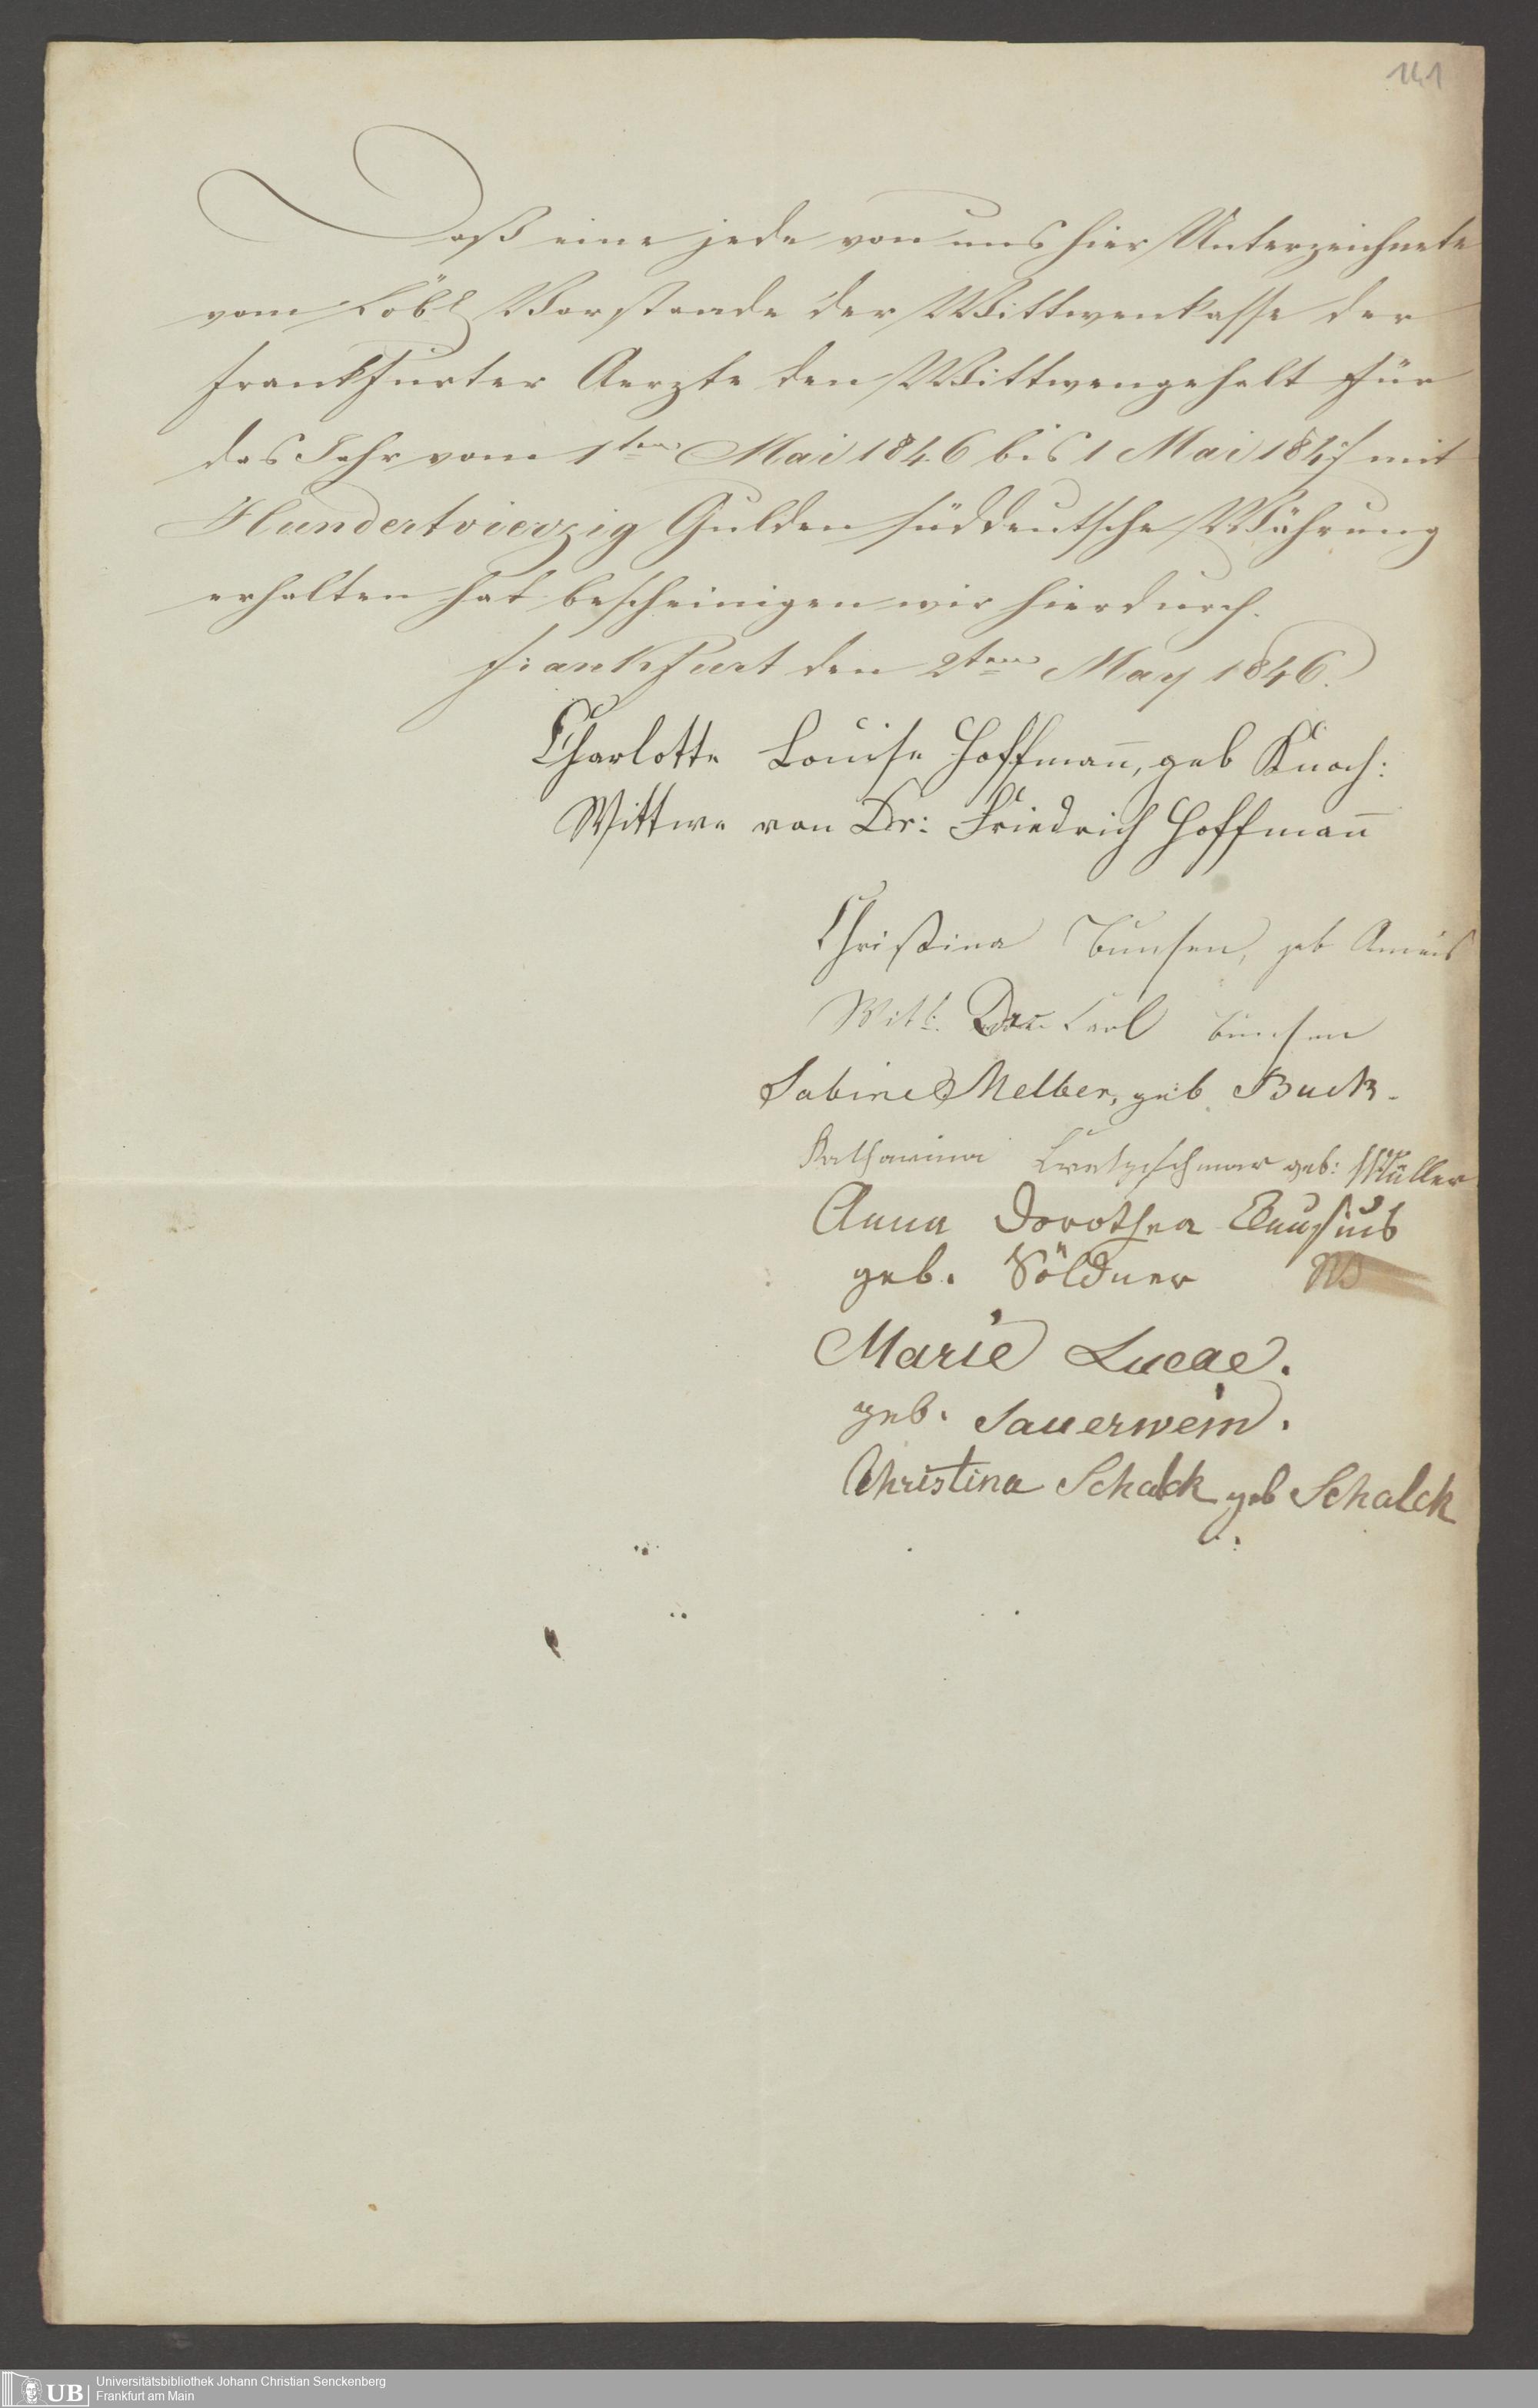 141
Daß eine jede von uns hier Unterzeichnete
vom Löbl Vorstande der Wittwenkasse der
Frankfurter Aerzte den Wittwengehalt für
das Jahr vom 1ten Mai 1846 bis 1 Mai 1847 mit
Hundertvierzig Gulden süddeutsche Währung
erhalten hat bescheinigen wir hierdurch.
Frankfurt den 2ten May 1846.
Charlotte Louise Hoffmann̄, geb Knoch:
Wittwe von Dr: Friedrich Hoffman̄
Christina Bunsen, geb Ameis
Witb. Carl Bunsen
Sabine Melber, geb Buck.
Katharina Kretzschmar geb: Müller
Anna Dorothea
geb. Söldner
Marie Lucae.
geb. Sauerwein.
Christina Schalck geb Schalck
UB
Universitätsbibliothek Johann Christian Senckenberg
Frankfurt am Main